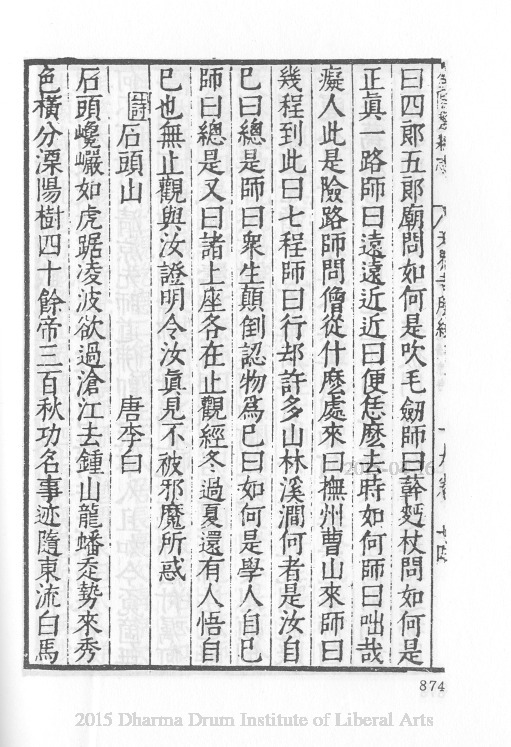 曰四郎五郎廟問如何是吹毛劒師曰簳麪杖問如何是
正眞一路師曰遠遠近近曰便恁麽去時如何師曰咄哉
癡人此是險路師問僧從什麽處來曰撫州曹山來師曰
幾程到此曰七程師曰行却許多山林溪澗何者是汝自
已曰總是師曰衆生顛倒認物爲已曰如何是學人自已
師曰總是又曰諸上座各在止觀經冬過夏還有人悟自
已也無止觀與汝證明令汝眞見不被邪魔所惑
詩 石頭山 唐李白
石頭巉巖如虎踞凌波欲過滄江去鍾山龍蟠走勢來秀
色橫分溧陽樹四十餘帝三百秋功名事迹隨東流白馬
874
2015 Dharma Drum Institute of Liberal Arts